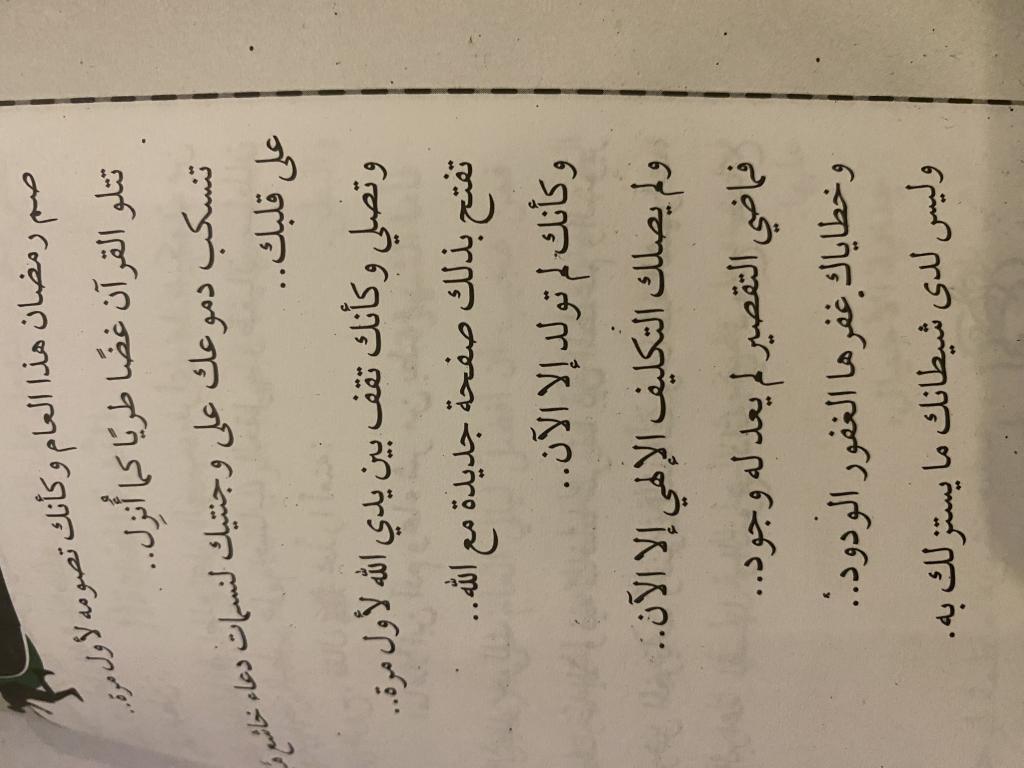 صم رمضان هذا العام وكأنك تصومه لأول مرة..
تتلو القرآن غضًا طريًا كما أُنزِل..
تنسكب دموعك على وجنتيك لنسمات دعاء خاشع
على قلبك..
وتصلي وكأنك تقف بين يدي الله لأول مرة..
تفتح بذلك صفحة جديدة مع الله..
وكأنك لم تولد إلا الآن..
ولم يصلك التكليف الإلهي إلا الآن..
فماضي التقصير لم يعد له وجود..
وخطاياك غفرها الغفور الودود..
وليس لدى شيطانك ما يستزلك به.